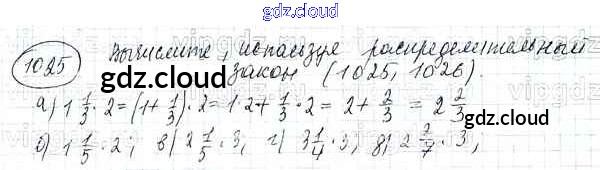 gdz.cloud
1025 Вычислите, используя распределительный
закон (1025, 1026).
gdz.cloud
а) 1 1/3 · 2 = (1 + 1/3) · 2 = 1 · 2 + 1/3 · 2 = 2 + 2/3 = 2 2/3
б) 1 1/5 · 2; в) 2 1/5 · 3, г) 3 1/4 · 3; д) 2 2/7 · 3;
gdz.cloud